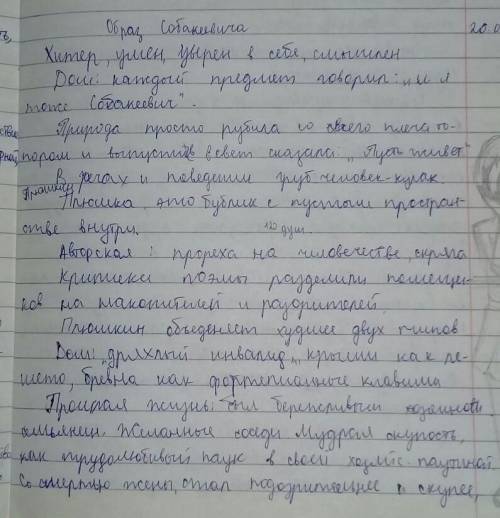 Образ Собакевича
20.0
Хитер, умен, уверен в себе, смышлен
Дом: каждый предмет говорил: „и я
тоже Собакевич".
Природа просто рубила со всего плеча то-
пором и выпустив в свет сказала: „Пусть живет"
В делах и поведении груб человек-кулак.
Плюшкин
Плюшка, это бублик с пустым простран-
ством внутри.
120 душ.
Авторская: прореха на человечестве, скряга
Критики поэмы разделили помещи-
ков на накопителей и разорителей.
Плюшкин объеденяет худшее двух типов
Дом: „дряхлый инвалид", крыши как ре-
шето, бревна как фортепианные клавиши
Прошлая жизнь: был бережливым хозяином
семьянин. Желанные соседи мудрая скупость,
как трудолюбивый паук в своей хозяйс. паутиной
Со смертью жены, стал подозрительнее и скупее,